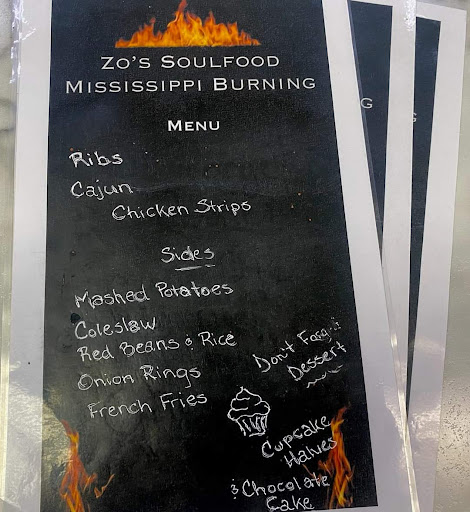 ZO'S SOULFOOD
MISSISSIPPI BURNING
MENU
Ribs
Cajun
Chicken Strips
Sides
Mashed Potatoes
Coleslaw
Red Beans & Rice
Onion Rings
French Fries
Don't
Dessert
Cupcake
Halves
& Chocolate
Cake
G
S